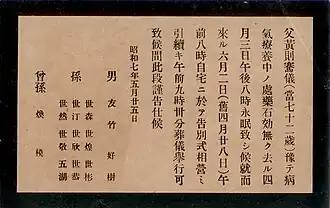 父黃則壽儀(當七十二歲)豫テ病
氣療養中ノ處藥石効無ク去ル四
月三日午後八時永眠致シ候就而
來ル六月二日(舊四月廿八日)午
前八時自宅ニ於テ告別式相營ミ
引續キ午前九時卅分葬儀舉行可
致候間此段謹告仕候
昭和七年五月廿五日
男 友竹 好樹
孫 世森 世煌 世彬
世汀 世欣 世恭
世然 世敬 五湖
曾孫 燦楼